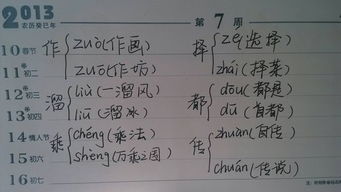 2013
农历癸巳年
第 7 周
10 春节 作 zuò(作画) 择 zé(选择)
11 初二 zuō(作坊) zhái(择菜)
12 初三 溜 liù(一溜风) 都 dōu(都是)
13 初四 liū(溜冰) dū(首都)
14 情人节 乘 chéng(乘法) 传 zhuàn(自传)
15 初六 shèng(万乘之国)
16 初七 chuán(传说)